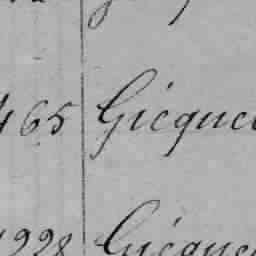 465 Gicquel
1228 Gicquel